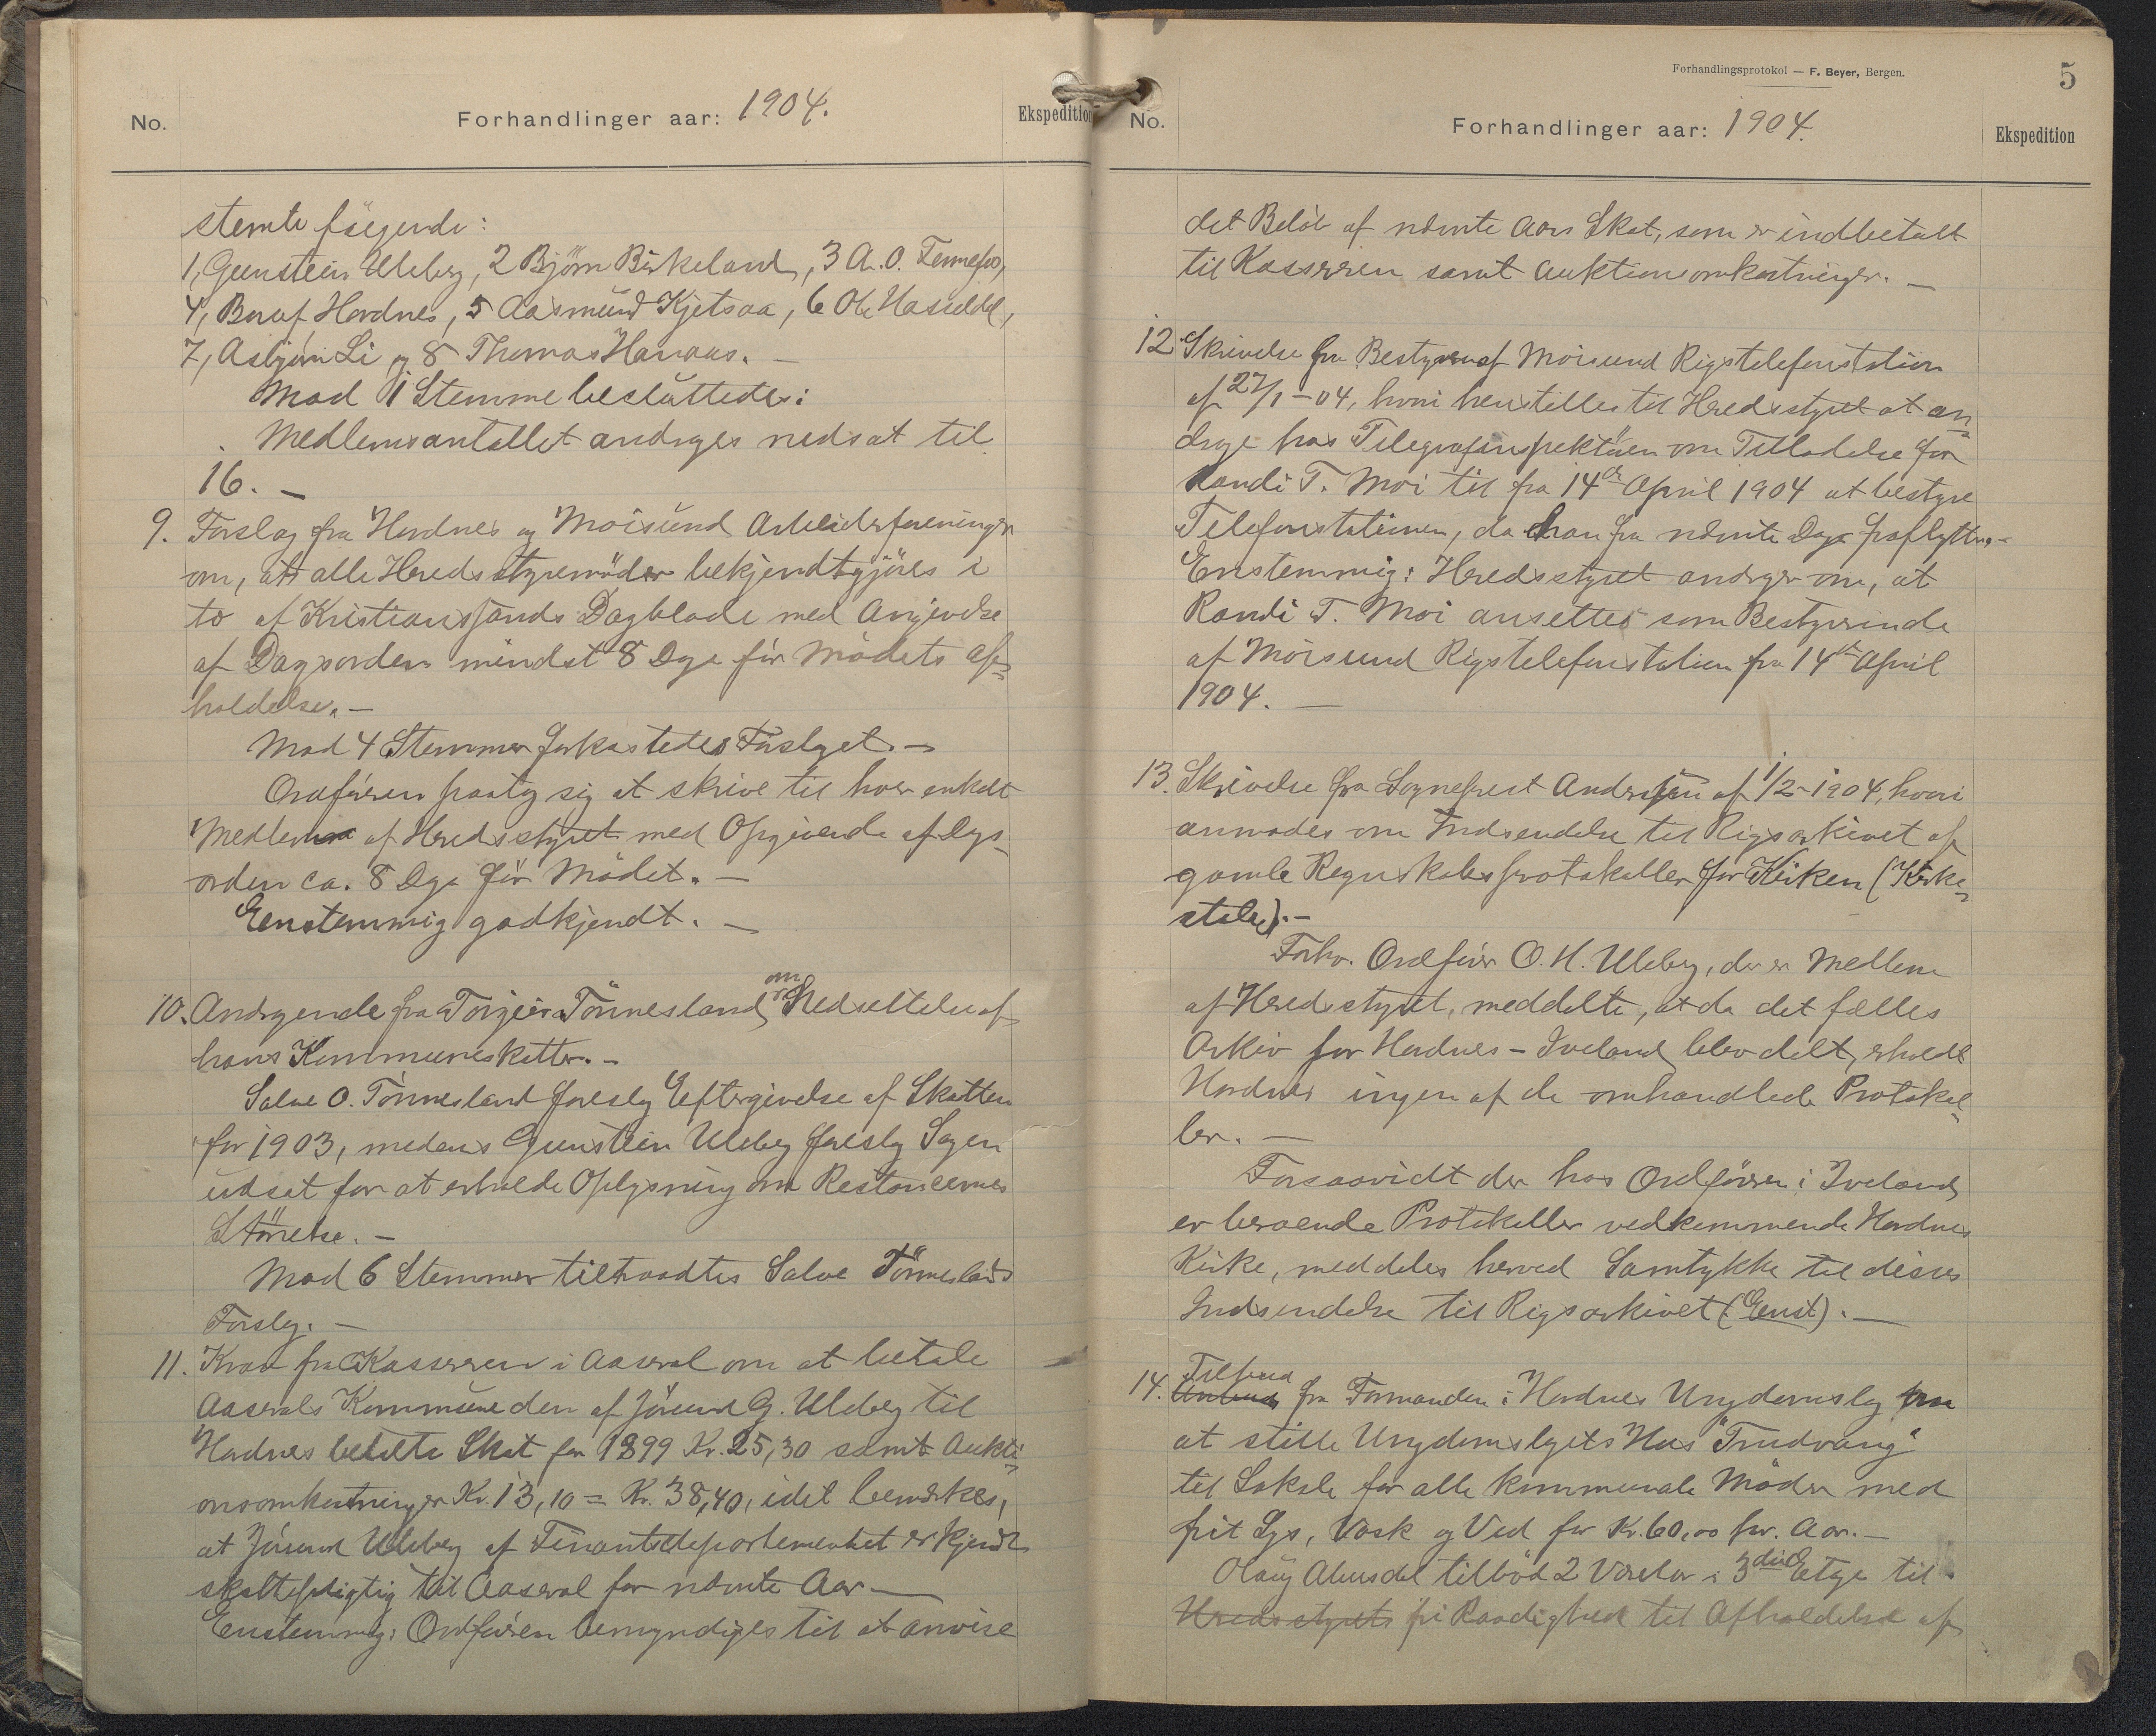 No.
Forhandlinger aar: 1904.
Ekspedition
stemte følgende:
1, Gunstein Uleberg, 2 Bjørn Birkeland, 3 A. O. Fennefos,
4, Hordnes, 5 Aasmund Kjetsaa, 6 Ole Hasseldal,
7, Asbjørn Li og 8 Thomas Hanaas. —
Mod 1 Stemme besluttedes:
Medlemsantallet andrages nedsat til
16. —
9. Forslag fra Hordnes og Moisund Arbeiderforeninger
om, at alle Heredsstyremöder bekjendtgjöres i
to af Kristianssands Dagblade med Angivelse
af Dagsorden mindst 8 Dage för Mödets Af=
holdelse. —
Mod 4 Stemmer forkastedes Forslaget. —
Ordföreren paatog sig at skrive til hver enkelt
Medlem af Heredsstyret med Opgivende af Dags-
orden ca. 8 Dage för Mödet. —
Eenstemmig godkjendt. —
10. Andragende fra Torgeir Tönnesland om Nedsættelse af
hans Kommuneskatter. —
Salve O. Tönnesland foreslog Eftergivelse af Skatten
for 1903, medens Gunstein Uleberg foreslog Sagen
udsat for at erholde Oplysning om Restancernes
Störrelse. —
Mod 6 Stemmer tiltraadtes Salve Tönneslands
Forslag. —
11. Krav fra Kassereren i Aaseral om at betale
Aaserals Kommune den af Jörund G. Uleberg til
Hordnes betalte Skat for 1899 Kr. 25,30 samt Aukti=
onsomkostninger Kr. 13,10 = Kr. 38,40, idet bemærkes,
at Jörund Uleberg af Finantsdepartementet er kjendt
skattepligtig til Aaseral for nævnte Aar —
Eenstemmig: Ordföreren bemyndiges til at anvise
Forhandlingsprotokol — F. Beyer, Bergen.
5
No.
Forhandlinger aar: 1904.
Ekspedition
det Belöb af nævnte Aars Skat, som er indbetalt
til Kassereren samt Auktionsomkostninger. —
12 Skrivelse fra Bestyreren af Moisund Rigstelefonstation
af 27/1 - 04, hvori henstilles til Heredsstyret at an=
drage hos Telegrafinspektören om Tilladelse for
Randi T. Moi til fra 14de April 1904 at bestyre
Telefonstationen, da han fra nævnte Dag fraflytter. -
Enstemmig: Heredsstyret andrager om, at
Randi T. Moi ansettes som Bestyrerinde
af Moisund Rigstelefonstation fra 14de April
1904. —
13. Skrivelse fra Sogneprest Andersen af 1/2 - 1904, hvori
anmodes om Indsendelse til Rigsarkivet af
gamle Regnskabsprotokoller for Kirken (Kirke=
stole). —
Forhv. Ordförer O. H. Uleberg, der er Medlem
af Heredsstyret, meddelte, at da det fælles
Arkiv for Hordnes - Iveland blev delt, erholdt
Hordnes ingen af de omhandlede Protokol=
ler. —
Forsaavidt der hos Ordföreren i Iveland
er beroende Protokoller vedkommende Hordnes
Kirke, meddeles herved Samtykke til disses
Indsendelse til Rigsarkivet (Eenst). —
14. Tilbud fra Formanden i Hordnes Ungdomslag
at stille Ungdomslagets Hus "Trudvang"
til Lokale for alle kommunale Möder med
frit Lys, Vask og Ved for Kr. 60,00 pr. Aar. —
Olaug Abusdal tilböd 2 Værelser i 3die Etage til
Heredsstyrets fri Raadighed til Afholdelse af